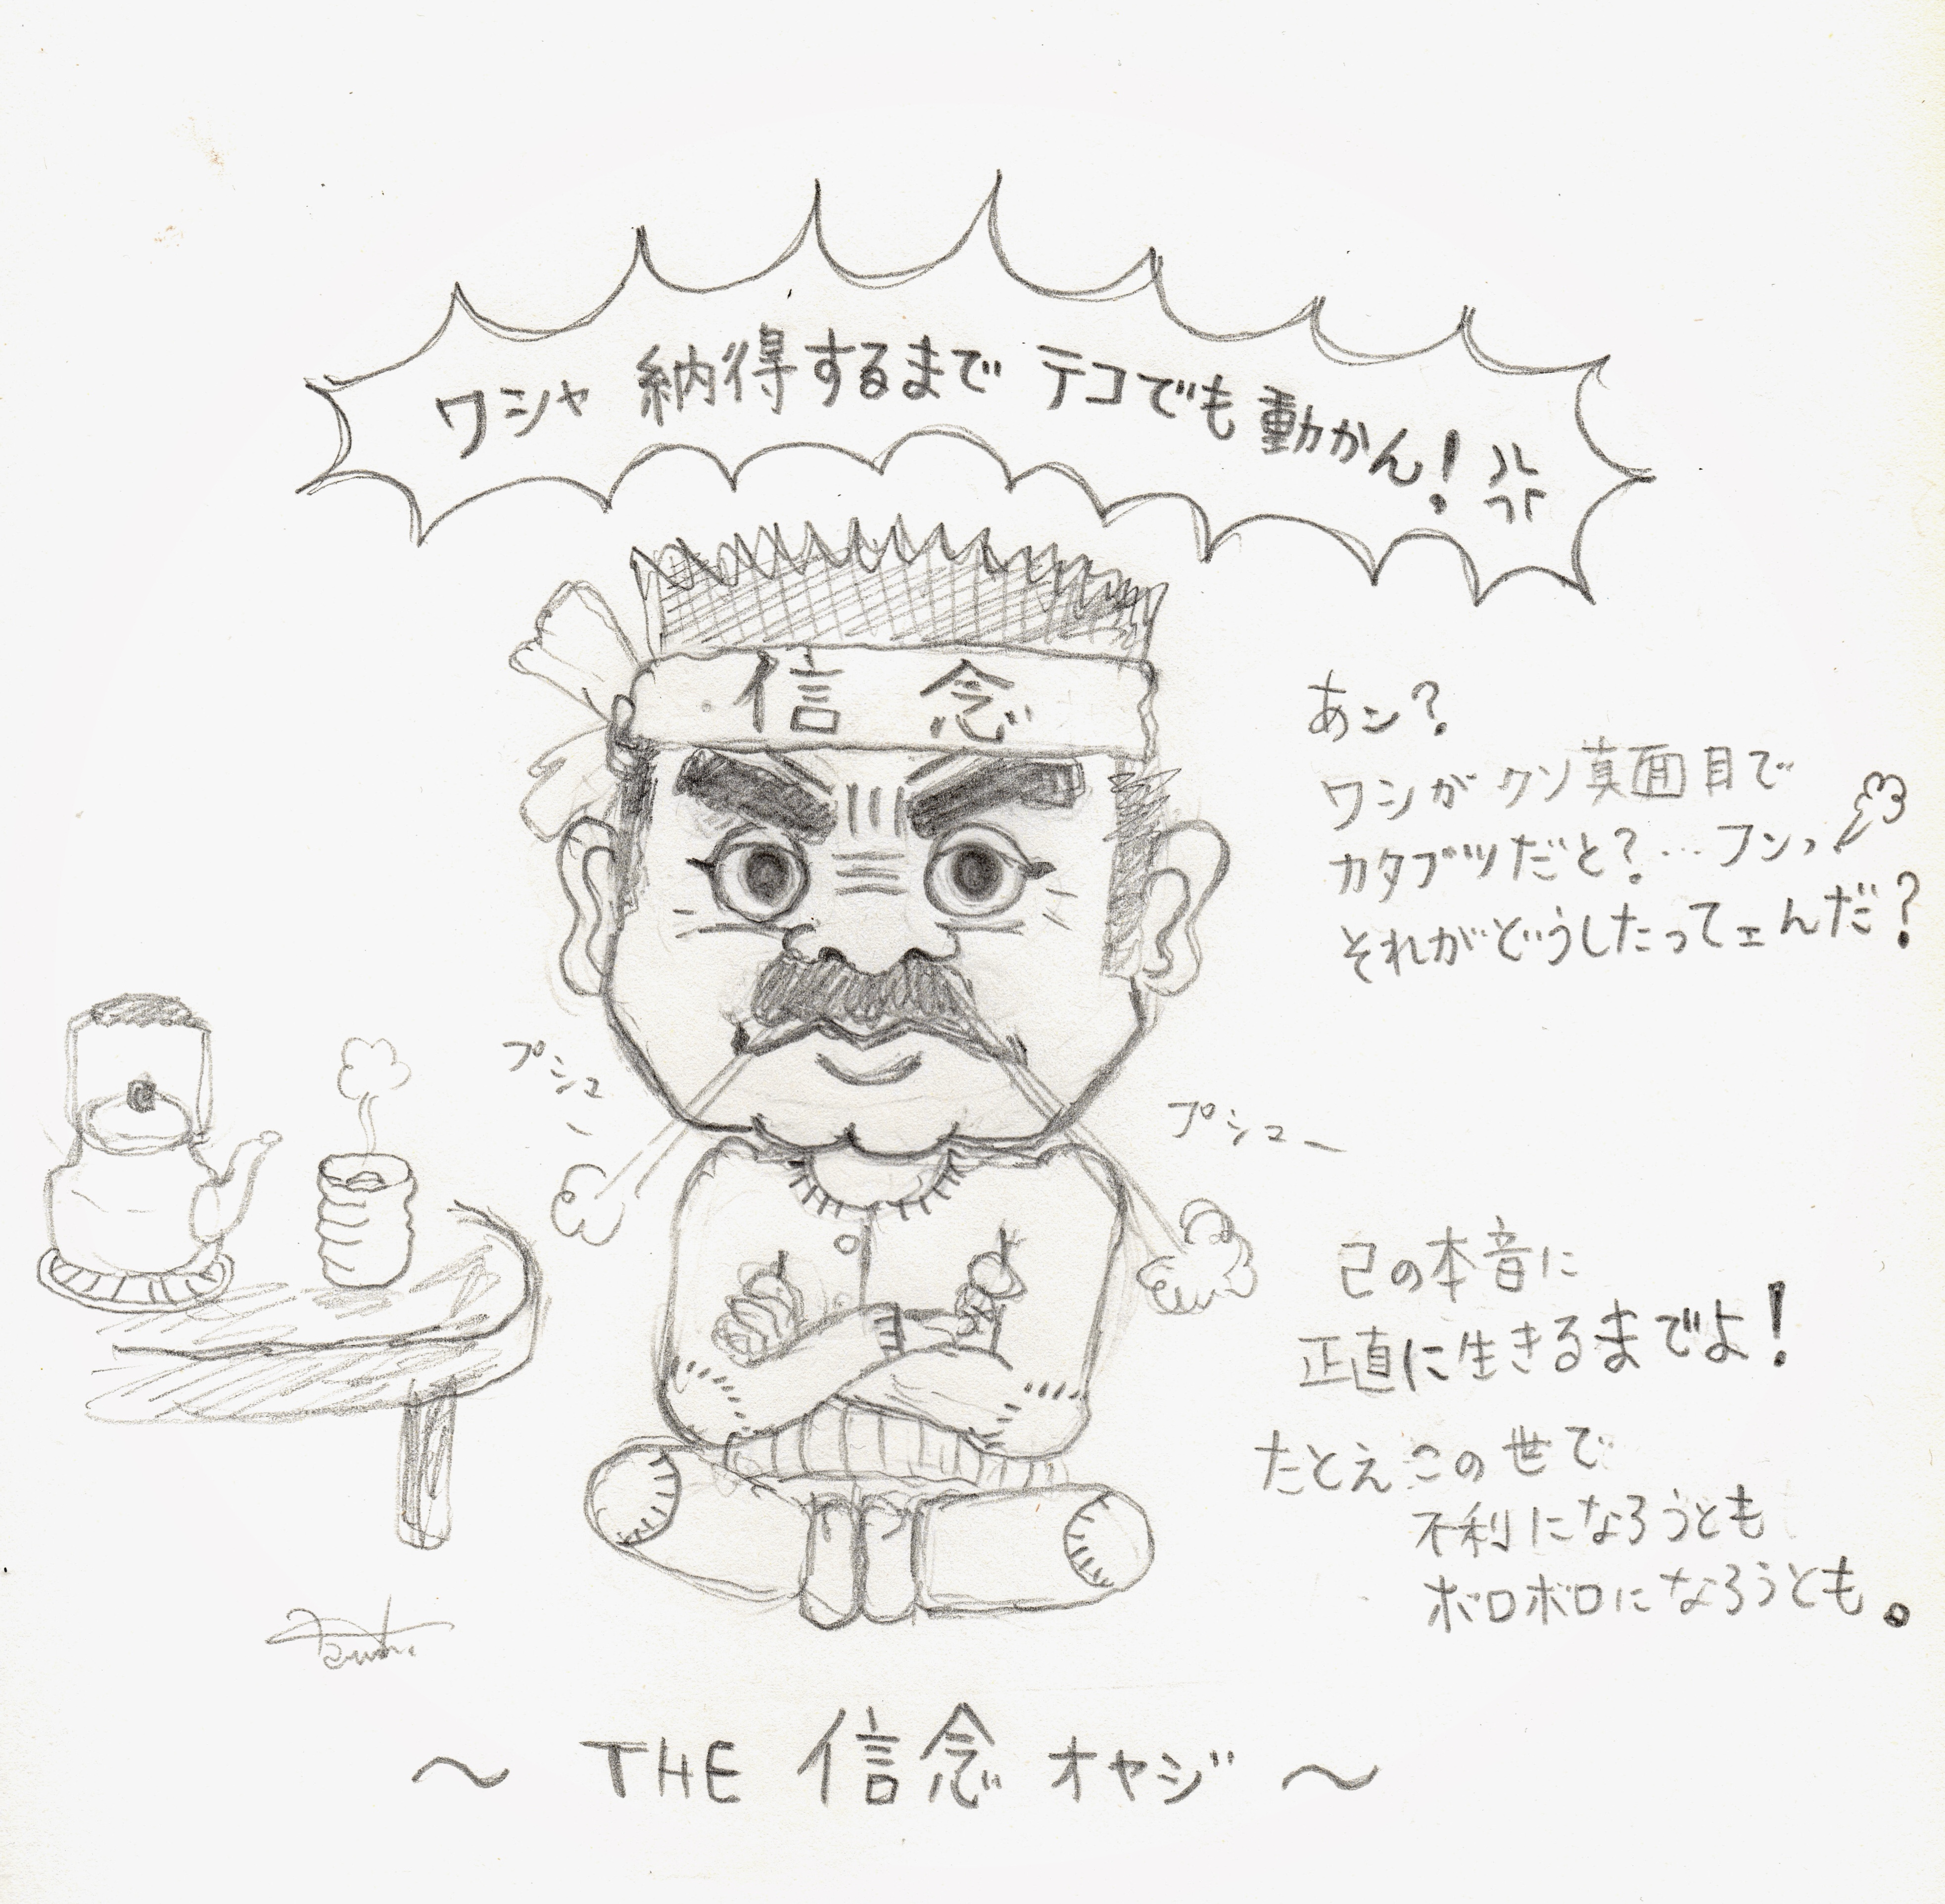 ワシャ 納得するまで テコでも動かん！
信念
あン？
ワシがクソ真面目で
カタブツだと？…フンっ
それがどうしたってェんだ？
プシュー
プシュー
己の本音に
正直に生きるまでよ！
たとえこの世で
不利になろうとも
ボロボロになろうとも。
～ THE 信念 オヤジ ～